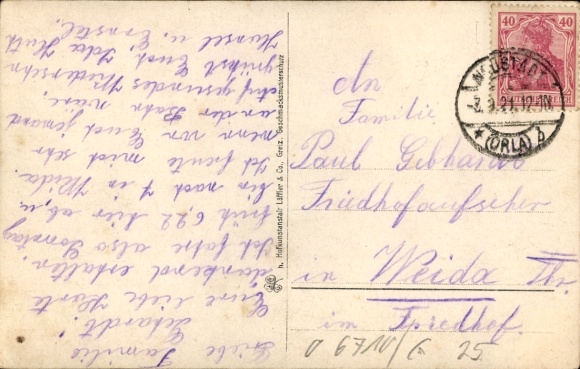 Liebe
Familie
Gebhardt!
Eure liebe Karte
dankend erhalten.
Ich fahre also Sonntag
früh 6,22 hier ab, u.
bin nach 7 in Weida.
Ich freute mich sehr
wenn von Euch jemand
an der Bahn wäre.
Auf gesundes Wiedersehn
grüßt Euch Ida Huth
Hänsel u. Ernstel.
h. Hofkunstanstalt Löffler & Co., Greiz. Geschmacksmusterschutz
40 40
NEUSTADT
3.9.21.12-1N
★ (ORLA) b
An
Familie
Paul Gebhardt
Friedhofaufseher
in Weida Th.
im Friedhof.